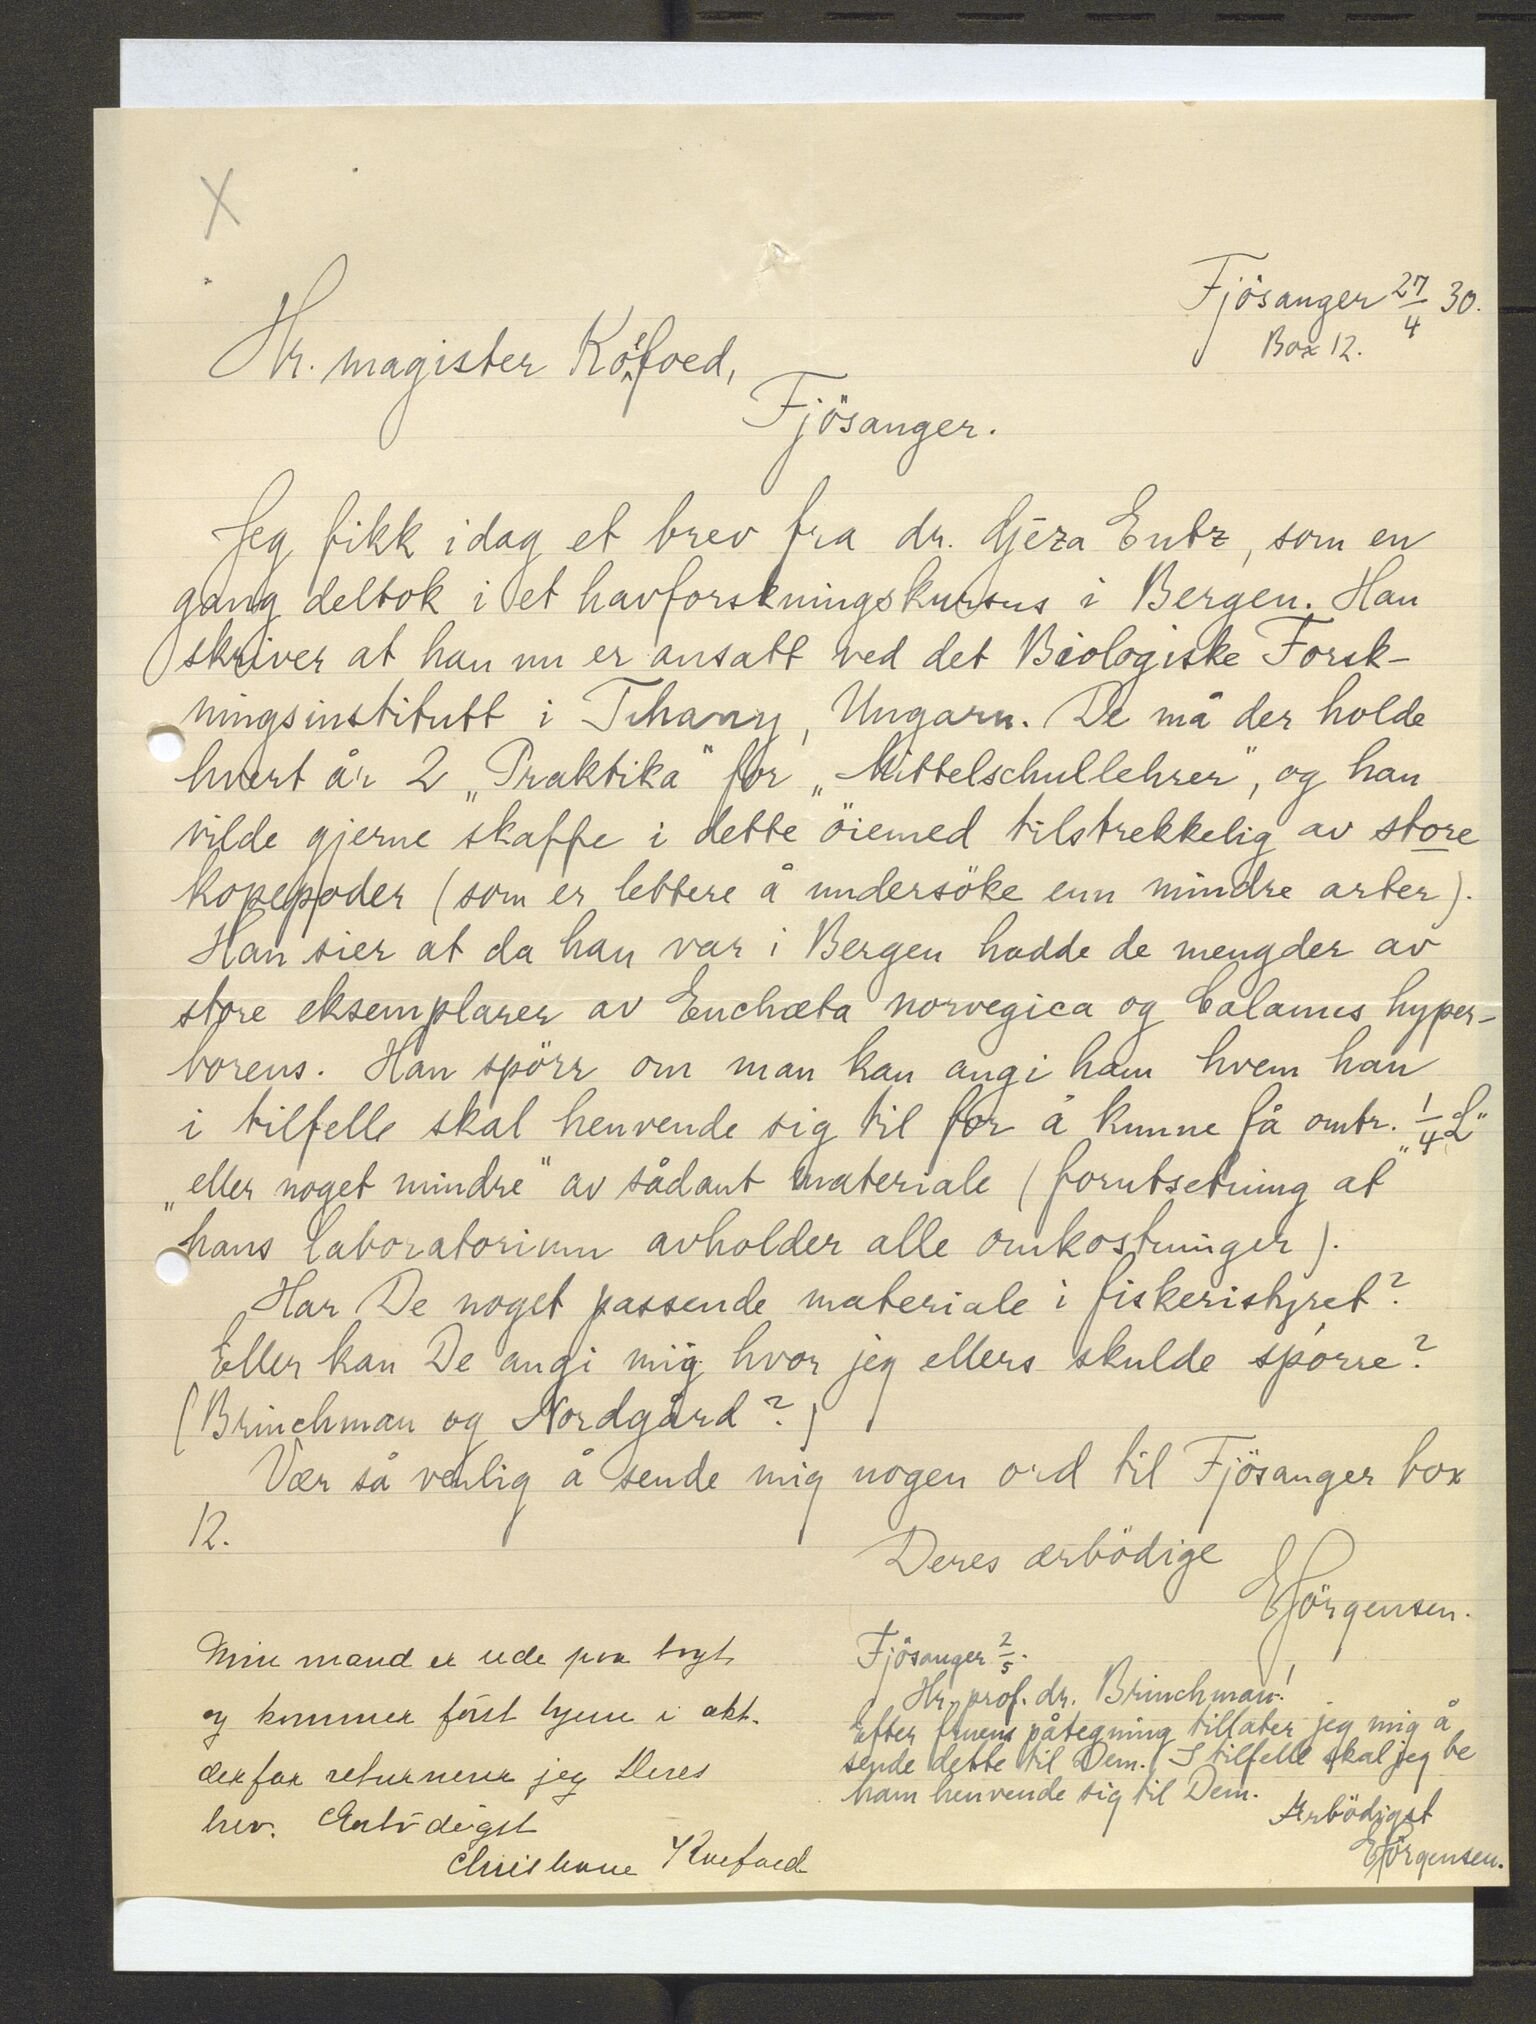 X
Fjösanger 27/4 30.
Box 12.
Hr. magister Köefoed,
Fjösanger.
Jeg fikk idag et brev fra dr. Géza Entz, som en
gang deltok i et havforskningskursus i Bergen. Han
skriver at han nu er ansatt ved det Biologiske Forsk-
ningsinstitutt i Tihany, Ungarn. De må der holde
hvert år 2 „Praktika" for „Mittelschullehrer", og han
vilde gjerne skaffe i dette öiemed tilstrekkelig av store
kopepoder (som er lettere å undersöke enn mindre arter).
Han sier at da han var i Bergen hadde de mengder av
store eksemplarer av Euchæta norvegica og Calanus hyper-
boreus. Han spörr om man kan angi ham hvem han
i tilfelle skal henvende sig til for å kunne få omtr. „1/4 L"
„eller noget mindre" av sådant materiale (forutsetning at
hans laboratorium avholder alle omkostninger).
Har De noget passende materiale i fiskeristyret?
Eller kan De angi mig hvor jeg ellers skulde spörre?
(Brinchman og Nordgård?)
Vær så venlig å sende mig nogen ord til Fjösanger box
12.
Deres ærbödige
EJörgensen.
Min mand er ude paa togt
og kommer först hjem i okt.
derfor returnerer jeg Deres
brev. Ærbödigst
Christiane Koefoed
Fjösanger 2/5.
Hr. prof. dr. Brinchman!
Efter fruens påtegning tillater jeg mig å
sende dette til Dem. I tilfelle skal jeg be
ham henvende sig til Dem.
Ærbödigst
EJörgensen.